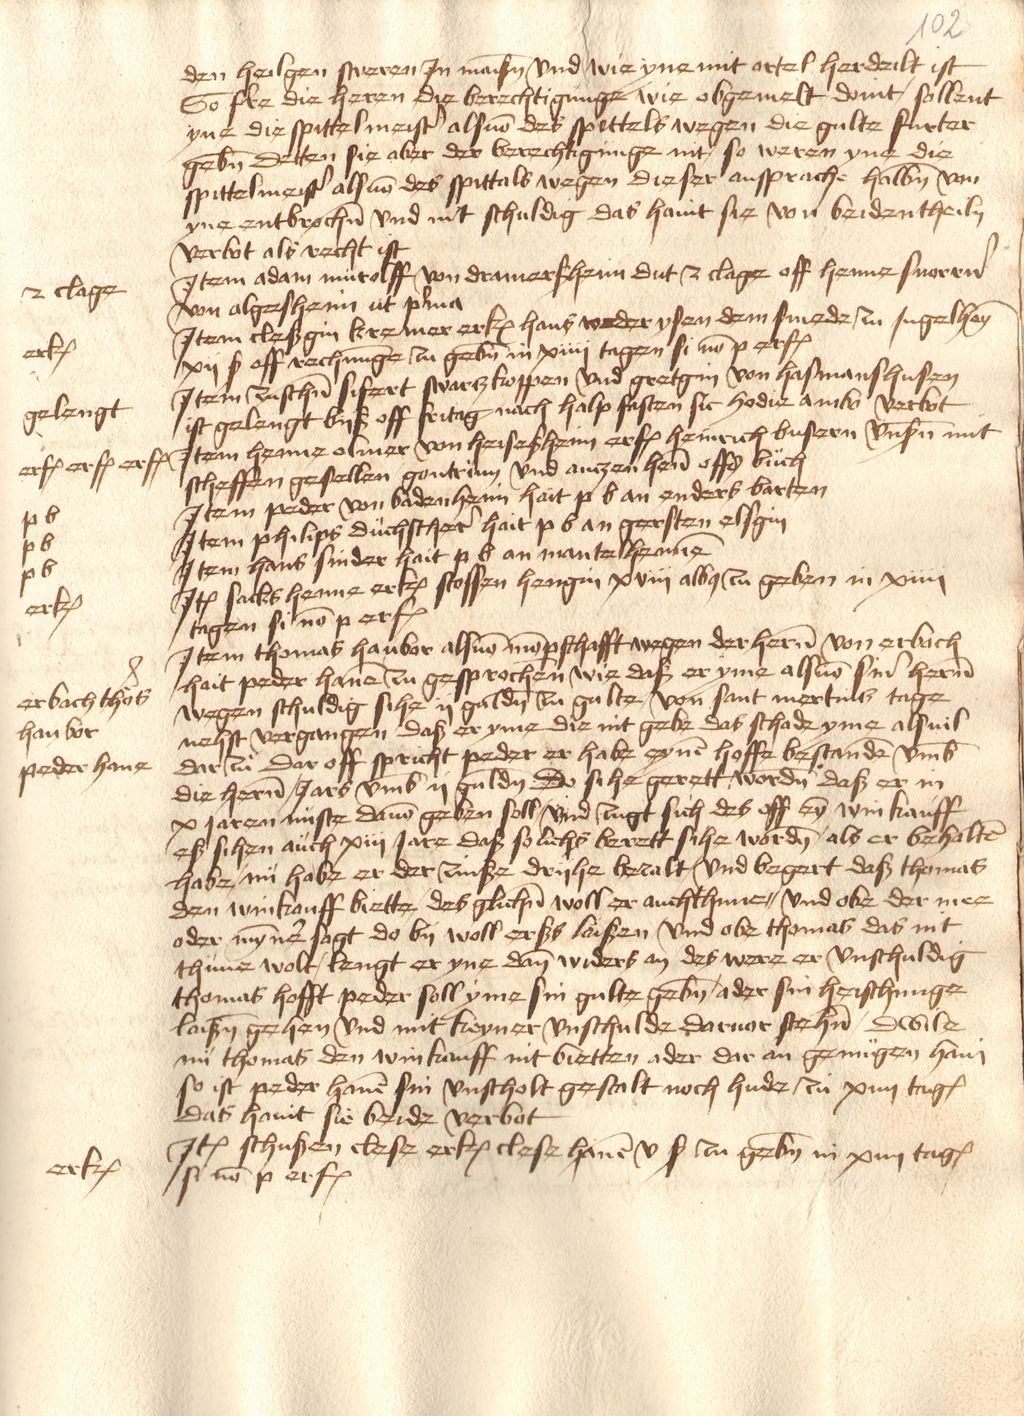 102
den heilgen sweren In maißñ vnd wie yne mit ortel herdeilt ist
So sie die heren die berechtigunge wie obgemelt dont sollent
yne die spittelmeist' als von des spittels wegen die gulte furter
gebñ Detten sie aber der berechtigunge nit so weren yne die
spittelmeist' als von des spittals wegen dieser ansprache halbñ von
yne entbrochñ vnd nit schuldig das haint sie von beiden theiln
verbot als recht ist
2 clage
Item adam von dramerßheim dut 2 clage off henne
von algeßheim ut p'ma
erk
Item cleßgin kremer erk hans yseñ dem smede zu Ingelheim
xii ß off rechnunge zu gebñ in xiiii tagen si nõ p erf
gelengt
Item zuschñ sifert swartzkoppen vnd gretgin von hasmanshusen
ist gelengt biß off fritag nach halp fasten sic hodie ambo verbot
erf erf erf
Item henne olmer von heiseßheim erf heinrich busern vnsñ mit
scheffen gesellen gontrum vnd antzenhen offs buch
p b
Item peder von badenheim hait p b an enders barten
p b
Item philips duchscher' hait p b an gersten elsgin
p b
Item hans snider hait p b an mantelhenne
erk
Itē sacks henne erk stoffen hengin xviii albq zu geben in xiiii
tagen si nõ p erf
erbach thõs
hanbor
peder hane
Item thomas hanbor als von mõpschafft wegen der herñ von erbach
hait peder hanē zu gesprochen wie daß er yme als von sin' herñ
wegen schuldig sihe ij guldñ zu gulte von sant mertins tage
nehst vergangen daß er yme die nit gebe das schade yme alsuil
dar zu Dar off spricht peder er habe eynē hoffe bestanden vmb
die herñ Jars vmb ij guldñ Do sihe gerett wordñ daß er in
x Jaren nuste dauon geben soll vnd zugt sich des off eyñ winkauff
eß sihen auch xiii Jare daß solichs berett sihe wordñ als er behaltē
habe nu habe er der zinße drijhe betzalt vnd begert daß thomas
den winkauff biette des glichñ woll er auch thune vnd obe der mee
oder myn'e sagt do bij woll erßs laißen vnd obe thomas das nit
thune wolt lengt er yne dañ widers an des were er vnschuldig
thomas hofft peder soll yme sin gulte gebñ ader sin heischunge
laißñ gehen vnd mit keyner vnschulde daruor stehñ Dwile
nu thomas den winkauff nit bietten ader dar an genugen hain
so ist peder hanē sin vnscholt gestalt noch hude zu xiiii tagē
das haint sie beide verbot
erk
Itē schußen clese erk clese hanē v ß zu gebñ in xiiii tagē
si nõ p erf